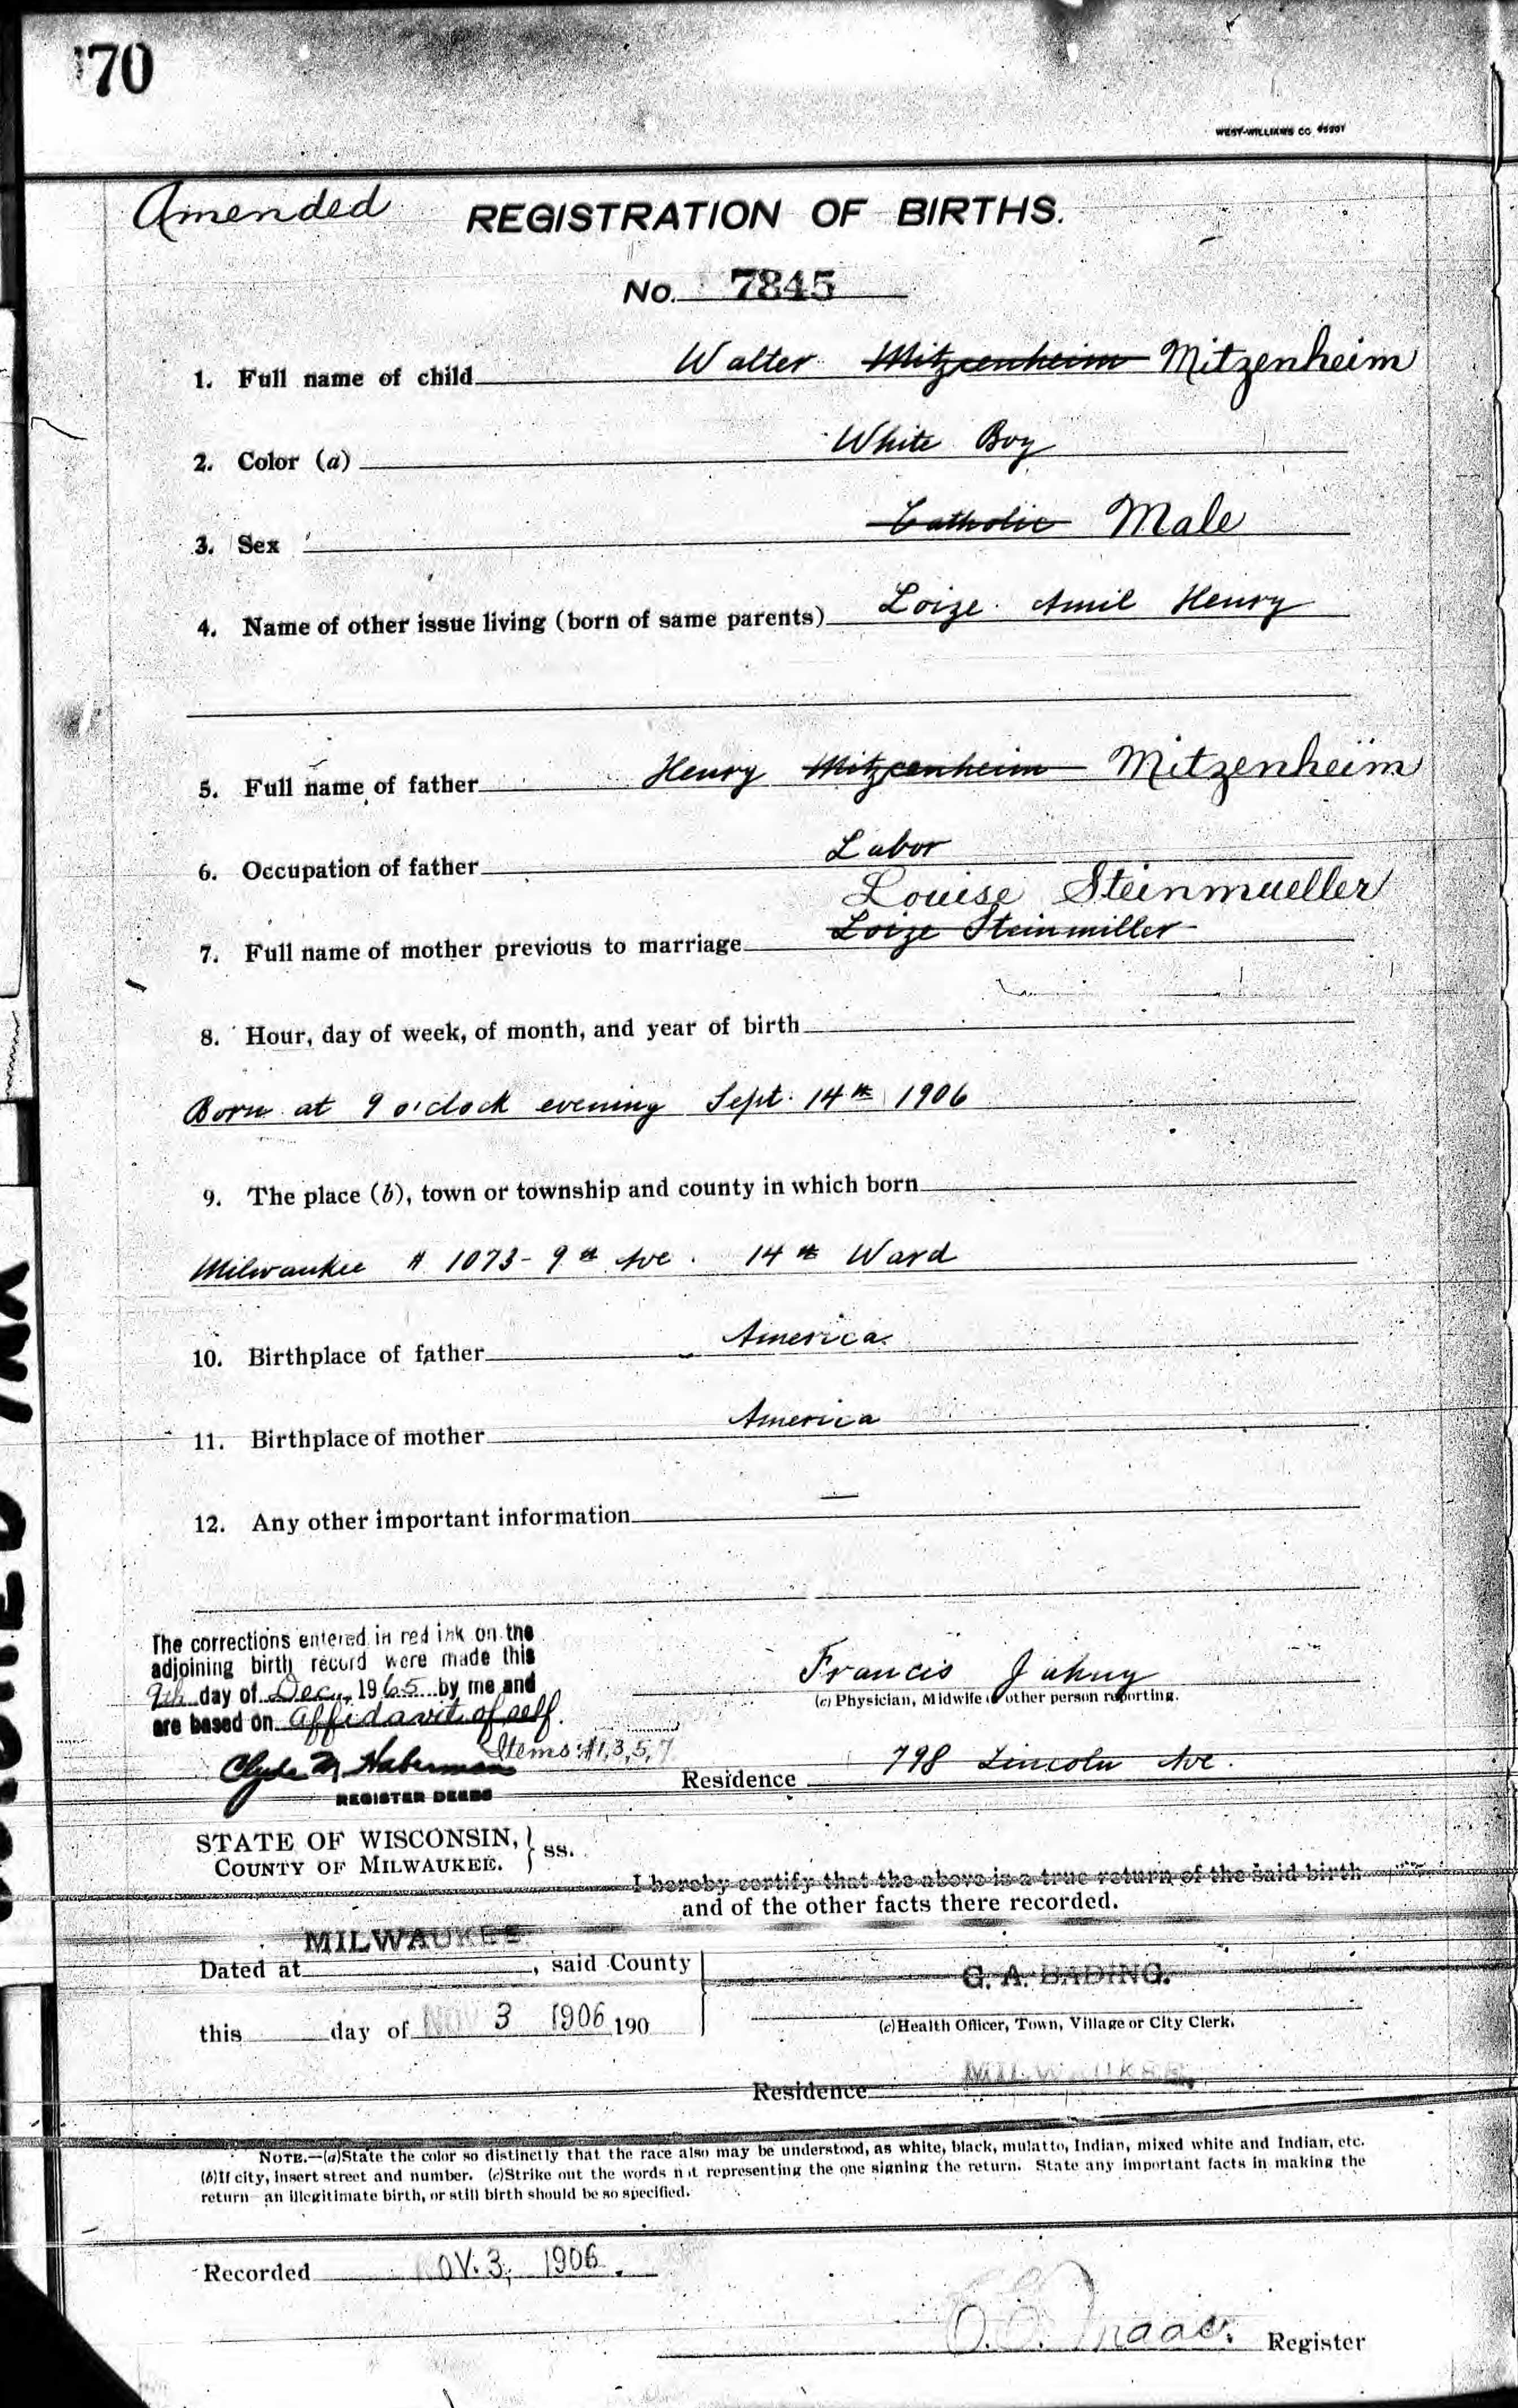 70
WEST-WILLIAMS CO
Amended
REGISTRATION OF BIRTHS.
No. 7845
1. Full name of child Walter Mitzcenheim Mitzenheim
2. Color (a) White Boy
3. Sex Catholic Male
4. Name of other issue living (born of same parents) Loize Amil Henry
5. Full name of father Henry Mitzcenheim Mitzenheim
6. Occupation of father Labor
Louise Steinmueller
7. Full name of mother previous to marriage Loize Steinmiller
8. Hour, day of week, of month, and year of birth
Born at 9 o'clock evening Sept. 14th 1906
9. The place (b), town or township and county in which born
Milwaukee # 1073 - 9th Ave. 14th Ward
10. Birthplace of father America
11. Birthplace of mother America
12. Any other important information —
The corrections entered in red ink on the
adjoining birth record were made this
9th day of Dec. 1965 by me and
are based on affidavit of self.
Items #1,3,5,7
Clyde M Haberman
REGISTER DEEDS
Francis
(c) Physician, Midwife or other person reporting.
Residence 798 Lincoln Ave.
STATE OF WISCONSIN, } ss.
COUNTY OF MILWAUKEE.
I hereby certify that the above is a true return of the said birth
and of the other facts there recorded.
Dated at MILWAUKEE, said County
G. A. BADING.
this day of NOV 3 1906 190
(c) Health Officer, Town, Village or City Clerk.
Residence MILWAUKEE.
NOTE.—(a)State the color so distinctly that the race also may be understood, as white, black, mulatto, Indian, mixed white and Indian, etc.
(b)If city, insert street and number. (c)Strike out the words not representing the one signing the return. State any important facts in making the
return—an illegitimate birth, or still birth should be so specified.
Recorded NOV. 3, 1906.
Register